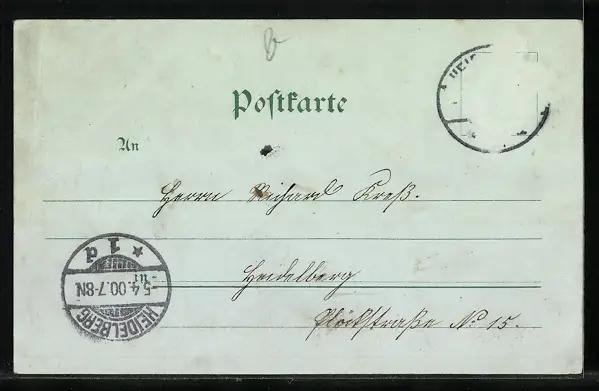 Postkarte
HEI
An
Herrn Richard Kreß.
in
Heidelberg
Plöckstraße No 15.
HEIDELBERG
5.4.00.7-8N.
* 1 d